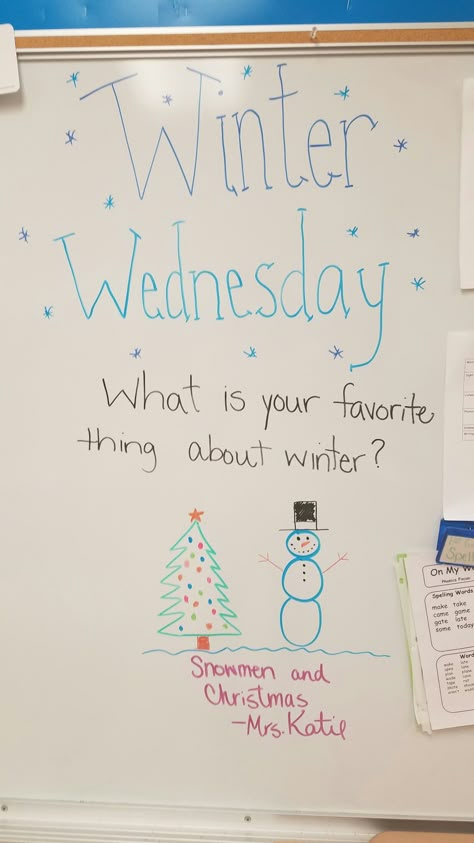 Winter
Wednesday
What is your favorite
thing about winter?
Snowmen and
Christmas
-Mrs. Katie
Spell
On My W
Phonics Focus:
Spelling Words
make take
came game
gate late
some today
Word